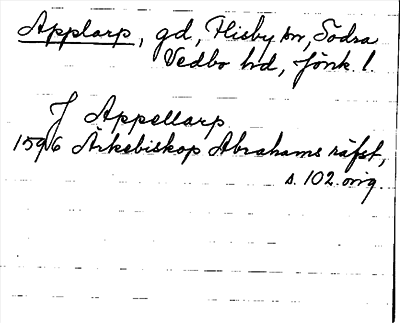 Applarp, gd, Flisby sn, Södra
Vedbo hd, Jönk. l.
J Appellarp
1596 Ärkebiskop Abrahams räfst,
s. 102. orig.